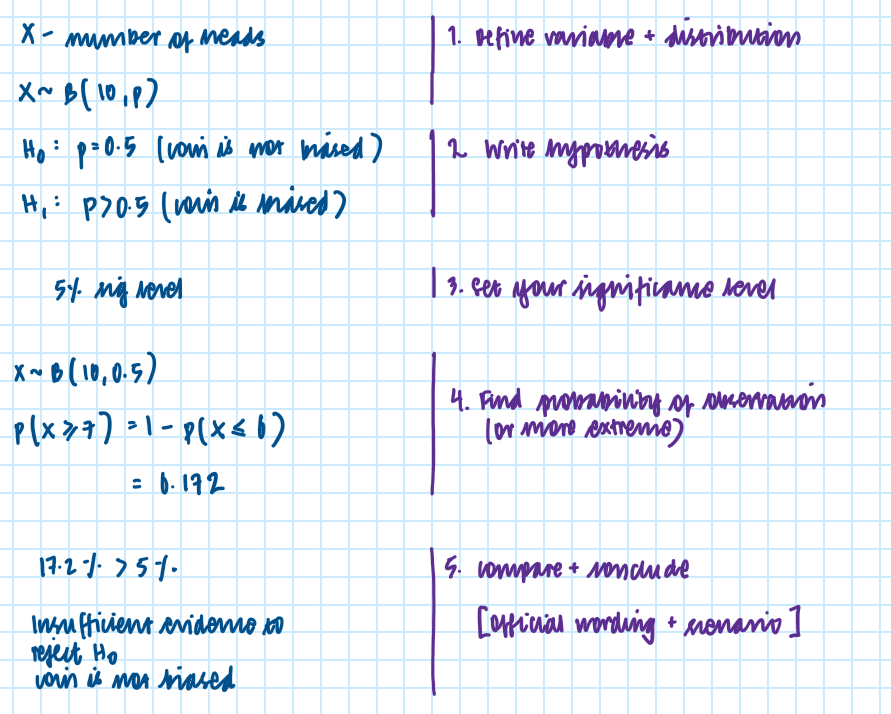 X - number of heads
X ~ B(10, p)
H₀: p=0.5 (coin is not biased)
H₁: p>0.5 (coin is biased)
5% sig level
X ~ B(10, 0.5)
P(X ≥ 7) = 1 - P(X ≤ 6)
= 0.172
17.2% > 5%.
Insufficient evidence to
reject H₀
coin is not biased
1. Define variable + distribution
2. Write hypothesis
3. Set your significance level
4. Find probability of observation
(or more extreme)
5. compare + conclude
[Official wording + scenario]